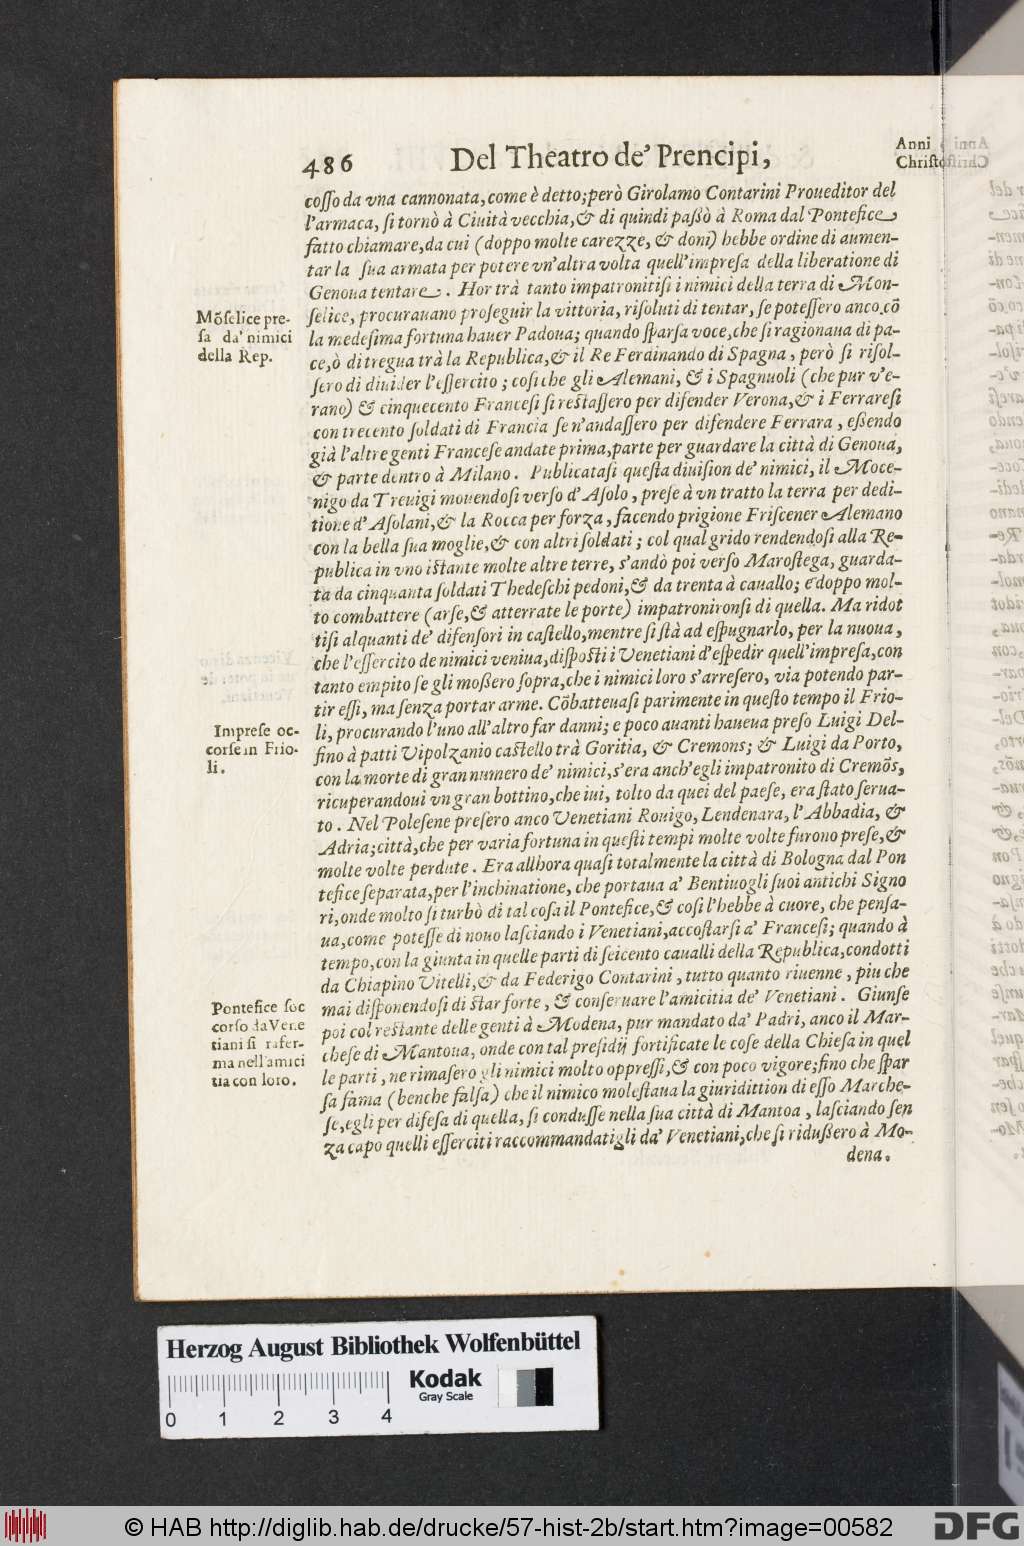 486 Del Theatro de' Prencipi,
Anni
Christo
coſſo da vna cannonata, come è detto; però Girolamo Contarini Proueditor del
l'armaca, ſi tornò à Ciuità vecchia, & di quindi paßò à Roma dal Pontefice
fatto chiamare, da cui (doppo molte carezze, & doni) hebbe ordine di aumen-
tar la ſua armata per potere vn'altra volta quell'impreſa della liberatione di
Genoua tentare. Hor trà tanto impatronitiſi i nimici della terra di Mon-
ſelice, procurauano proſeguir la vittoria, riſoluti di tentar, ſe poteſſero anco cõ
la medeſima fortuna hauer Padoua; quando ſparſa voce, che ſi ragionaua di pa-
ce, ò di tregua trà la Republica, & il Re Ferdinando di Spagna, però ſi riſol-
ſero di diuider l'eſſercito; coſi che gli Alemani, & i Spagnuoli (che pur v'e-
rano) & cinquecento Franceſi ſi reſtaſſero per difender Verona, & i Ferrareſi
con trecento ſoldati di Francia ſe n'andaſſero per difendere Ferrara, eßendo
già l'altre genti Franceſe andate prima, parte per guardare la città di Genoua,
& parte dentro à Milano. Publicataſi queſta diuiſion de' nimici, il Moce-
nigo da Treuigi mouendoſi verſo d'Aſolo, preſe à vn tratto la terra per dedi-
tione d'Aſolani, & la Rocca per forza, facendo prigione Friſcener Alemano
con la bella ſua moglie, & con altri ſoldati; col qual grido rendendoſi alla Re-
publica in vno iſtante molte altre terre, s'andò poi verſo Maroſtega, guarda-
ta da cinquanta ſoldati Thedeſchi pedoni, & da trenta à cauallo; e doppo mol-
to combattere (arſe, & atterrate le porte) impatronironſi di quella. Ma ridot
tiſi alquanti de' difenſori in caſtello, mentre ſi ſtà ad eſpugnarlo, per la nuoua,
che l'eſſercito de nimici veniua, diſpoſti i Venetiani d'eſpedir quell'impreſa, con
tanto empito ſe gli moßero ſopra, che i nimici loro s'arreſero, via potendo par-
tir eſſi, ma ſenza portar arme. Cõbatteuaſi parimente in queſto tempo il Frio-
li, procurando l'uno all'altro far danni; e poco auanti haueua preſo Luigi Del-
fino à patti Vipolzanio caſtello trà Goritia, & Cremons; & Luigi da Porto,
con la morte di gran numero de' nimici, s'era anch'egli impatronito di Cremõs,
ricuperandoui vn gran bottino, che iui, tolto da quei del paeſe, era ſtato ſerua-
to. Nel Poleſene preſero anco Venetiani Rouigo, Lendenara, l'Abbadia, &
Adria; città, che per varia fortuna in queſti tempi molte volte furono preſe, &
molte volte perdute. Era allhora quaſi totalmente la città di Bologna dal Pon
tefice ſeparata, per l'inchinatione, che portaua a' Bentiuogli ſuoi antichi Signo
ri, onde molto ſi turbò di tal coſa il Pontefice, & coſi l'hebbe à cuore, che penſa-
ua, come poteſſe di nouo laſciando i Venetiani, accoſtarſi a' Franceſi; quando à
tempo, con la giunta in quelle parti di ſeicento caualli della Republica, condotti
da Chiapino Vitelli, & da Federigo Contarini, tutto quanto riuenne, piu che
mai diſponendoſi di ſtar forte, & conſeruare l'amicitia de' Venetiani. Giunſe
poi col reſtante delle genti à Modena, pur mandato da' Padri, anco il Mar-
cheſe di Mantoua, onde con tal preſidij fortificate le coſe della Chieſa in quel
le parti, ne rimaſero gli nimici molto oppreſſi, & con poco vigore; fino che ſpar
ſa fama (benche falſa) che il nimico moleſtaua la giuridittion di eſſo Marche-
ſe, egli per difeſa di quella, ſi conduſſe nella ſua città di Mantoa, laſciando ſen
za capo quelli eſſerciti raccommandatigli da' Venetiani, che ſi ridußero à Mo-
dena.
Mõſelice pre-
ſa da' nimici
della Rep.
Impreſe oc-
corſe in Frio-
li.
Pontefice ſoc
corſo da Vene
tiani ſi rafer-
ma nell'amici
tia con loro.
Herzog August Bibliothek Wolfenbüttel
0 1 2 3 4
Kodak
Gray Scale
© HAB http://diglib.hab.de/drucke/57-hist-2b/start.htm?image=00582
DFG